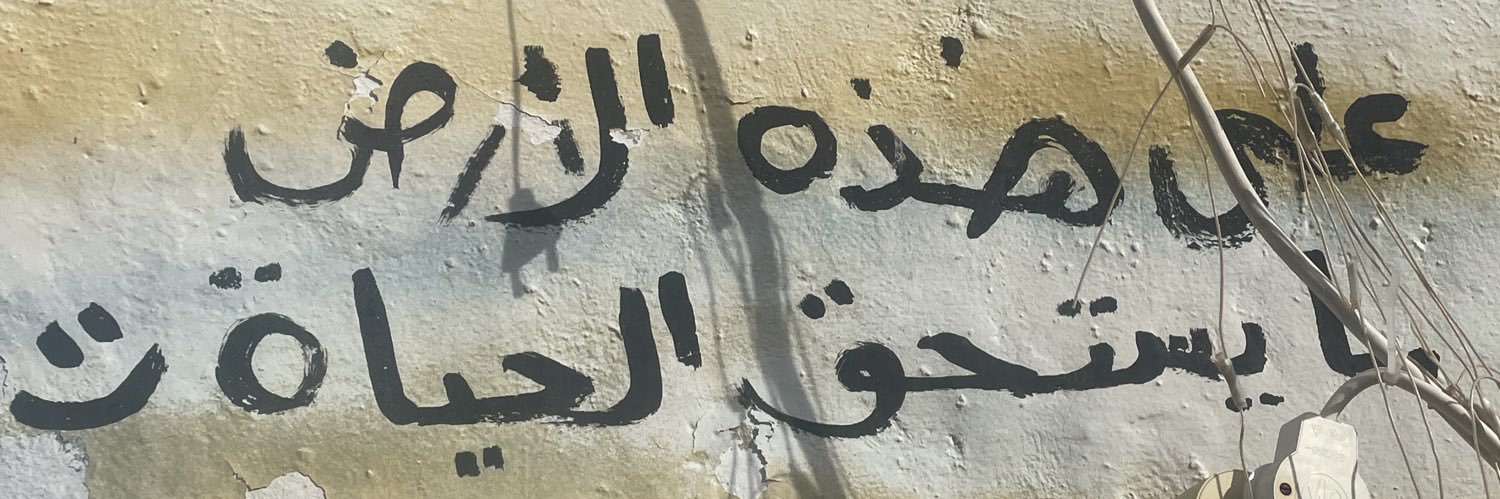 على هذه الارض
ما يستحق الحياة ت